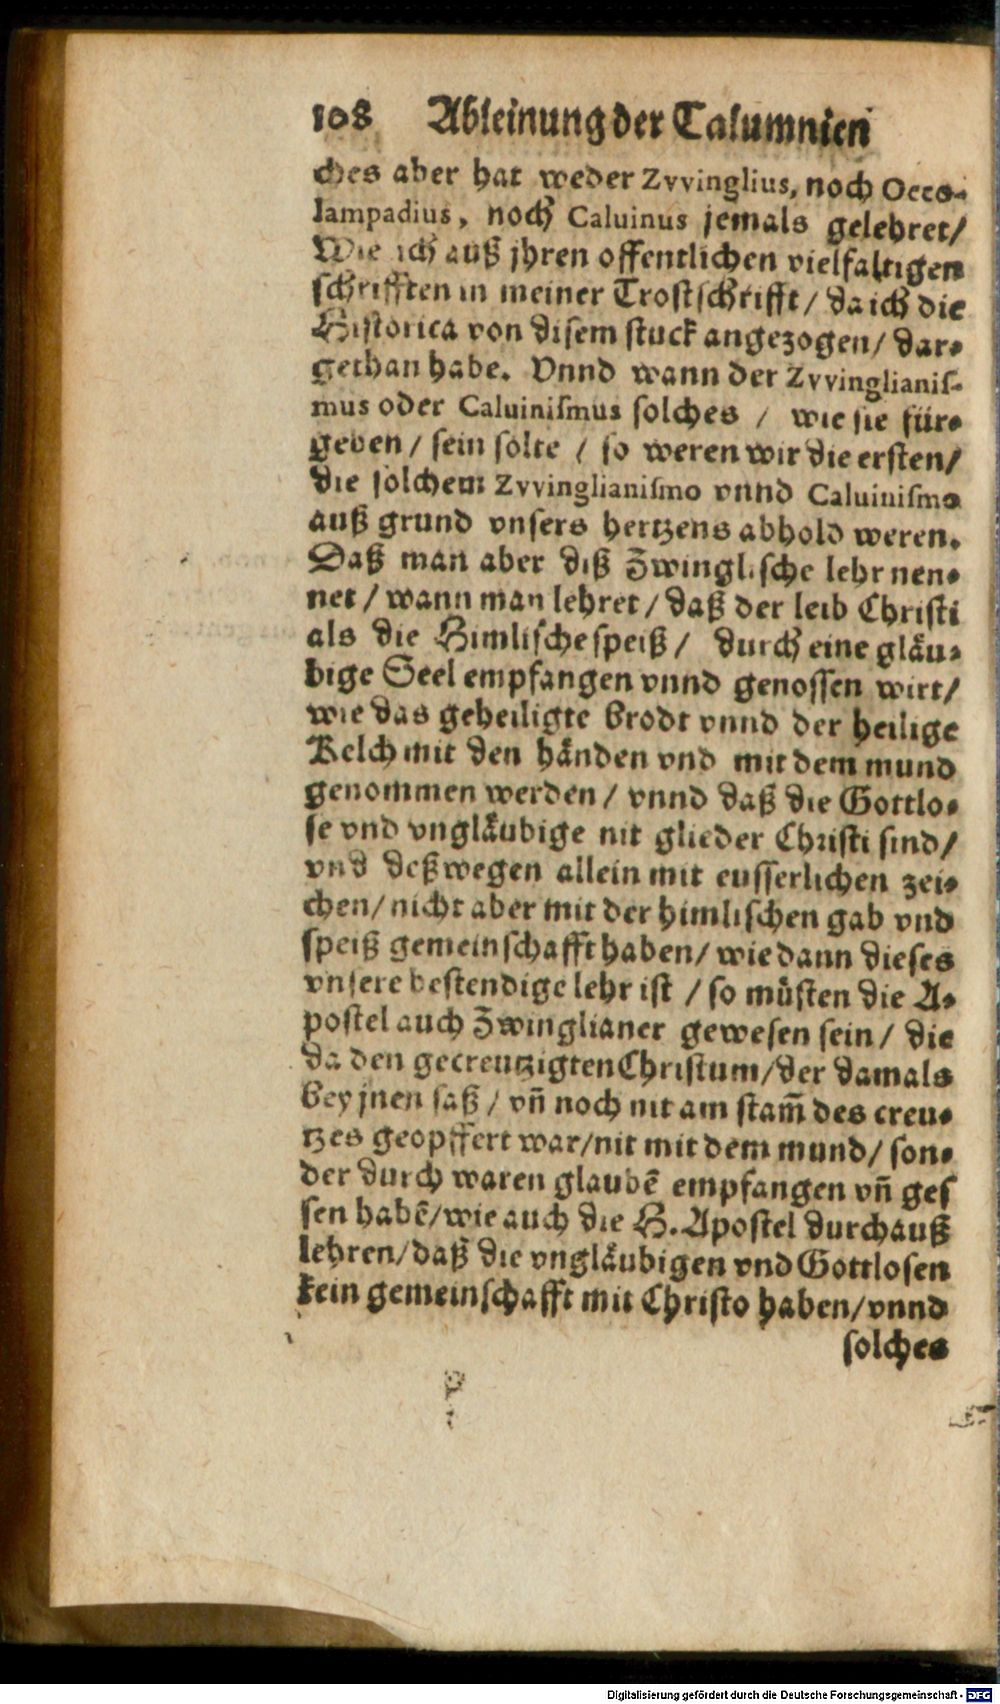 108 Ableinung der Calumnien
ches aber hat weder Zvvinglius, noch Oeco-
lampadius, noch Caluinus jemals gelehret/
Wie ich auß jhren offentlichen vielfaltigen
schrifften in meiner Trostschrifft/ da ich die
Historica von disem stuck angezogen/ dar-
gethan habe. Vnnd wann der Zvvinglianis-
mus oder Caluinismus solches / wie sie für-
geben/ sein solte / so weren wir die ersten/
die solchem Zvvinglianismo vnnd Caluinismo
auß grund vnsers hertzens abhold weren.
Daß man aber diß Zwinglische lehr nen-
net/ wann man lehret/ daß der leib Christi
als die Himlische speiß/ durch eine gläu-
bige Seel empfangen vnnd genossen wirt/
wie das geheiligte brodt vnnd der heilige
Kelch mit den händen vnd mit dem mund
genommen werden/ vnnd daß die Gottlo-
se vnd vngläubige nit glieder Christi sind/
vnd deßwegen allein mit eusserlichen zei-
chen/ nicht aber mit der himlischen gab vnd
speiß gemeinschafft haben/ wie dann dieses
vnsere bestendige lehr ist / so müsten die A-
postel auch Zwinglianer gewesen sein/ die
da den gecreutzigten Christum/ der damals
bey jnen saß/ vñ noch nit am stam̃ des creu-
tzes geopffert war/ nit mit dem mund/ son-
der durch waren glaubẽ empfangen vñ ges
sen habẽ/ wie auch die H. Apostel durchauß
lehren/ daß die vngläubigen vnd Gottlosen
kein gemeinschafft mit Christo haben/ vnnd
solches
Digitalisierung gefördert durch die Deutsche Forschungsgemeinschaft - DFG